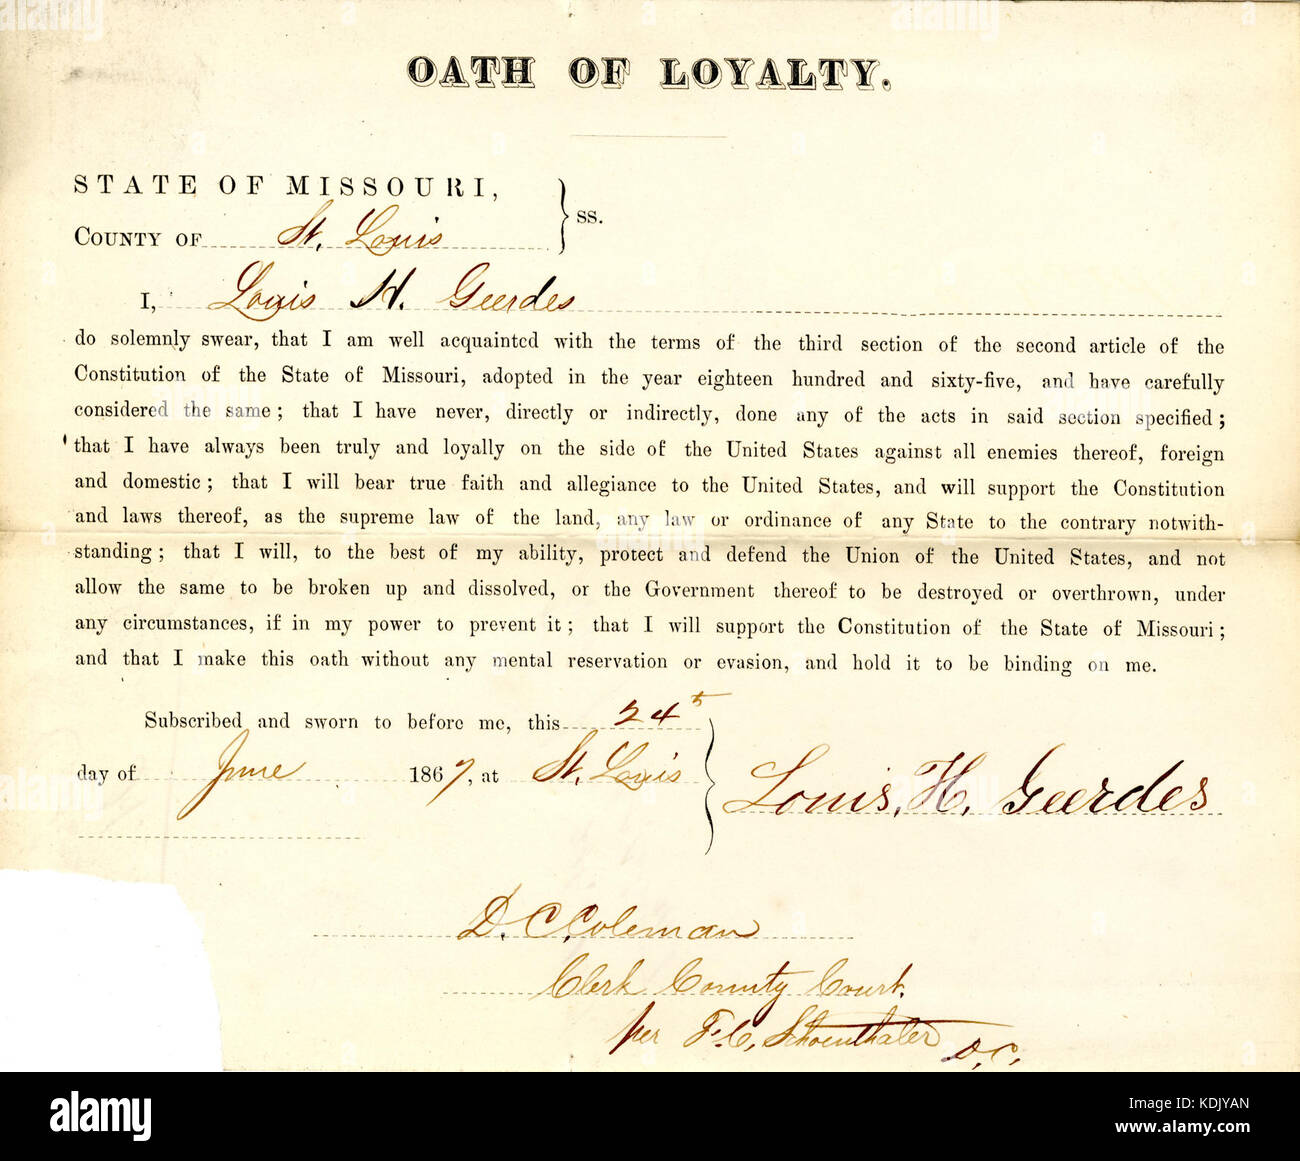 OATH OF LOYALTY.
STATE OF MISSOURI,
COUNTY OF St. Louis } ss.
I, Louis H. Geerdes
do solemnly swear, that I am well acquainted with the terms of the third section of the second article of the
Constitution of the State of Missouri, adopted in the year eighteen hundred and sixty-five, and have carefully
considered the same; that I have never, directly or indirectly, done any of the acts in said section specified;
that I have always been truly and loyally on the side of the United States against all enemies thereof, foreign
and domestic; that I will bear true faith and allegiance to the United States, and will support the Constitution
and laws thereof, as the supreme law of the land, any law or ordinance of any State to the contrary notwith-
standing; that I will, to the best of my ability, protect and defend the Union of the United States, and not
allow the same to be broken up and dissolved, or the Government thereof to be destroyed or overthrown, under
any circumstances, if in my power to prevent it; that I will support the Constitution of the State of Missouri;
and that I make this oath without any mental reservation or evasion, and hold it to be binding on me.
Subscribed and sworn to before me, this 24th
day of June 1867, at St. Louis
Louis. H. Geerdes
D. C. Coleman
Clerk County Court.
per F. C. Schoenthaler D.C.
alamy
Image ID: KDJYAN
www.alamy.com